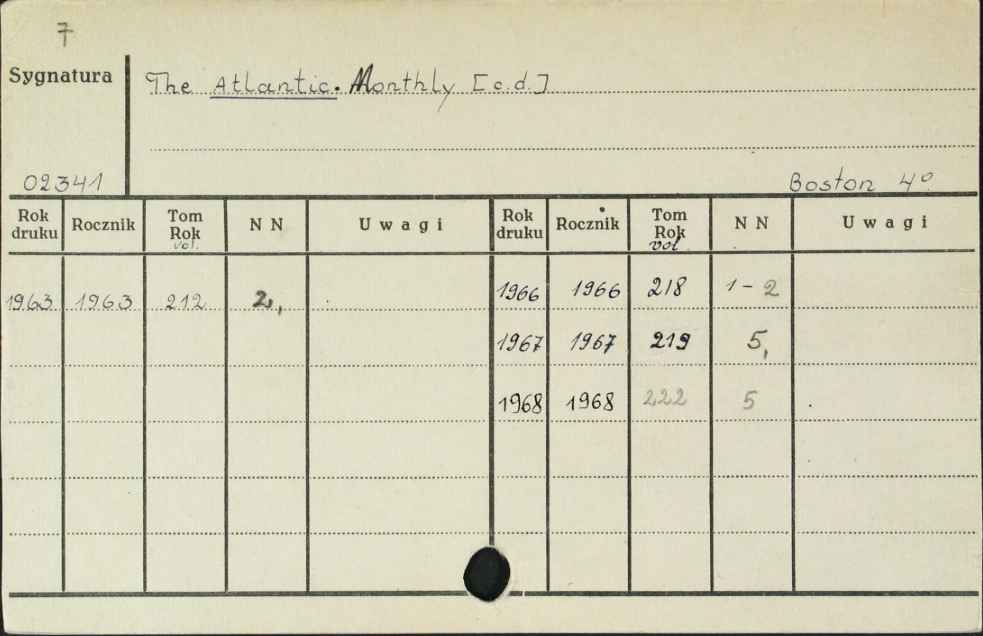 7
Sygnatura
The Atlantic. Monthly [c.d.]
02341
Boston 4°
Rok druku Rocznik Tom Rok vol. N N Uwagi Rok druku Rocznik Tom Rok vol N N Uwagi
1963 1963 212 2, 1966 1966 218 1-2
1967 1967 219 5,
1968 1968 222 5